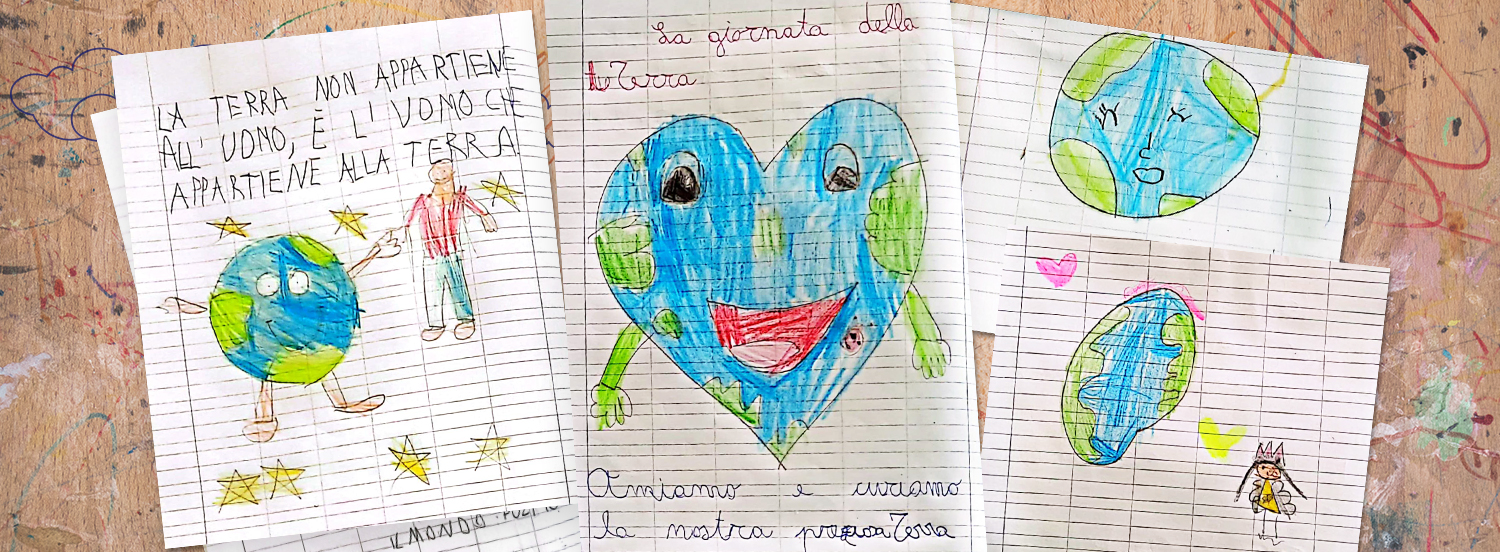 LA TERRA NON APPARTIENE
ALL' UONO, È L' UOMO CHE
APPARTIENE ALLA TERRA
IL MONDO
La giornata della
Terra
Amiamo e curiamo
la nostra preziosa Terra